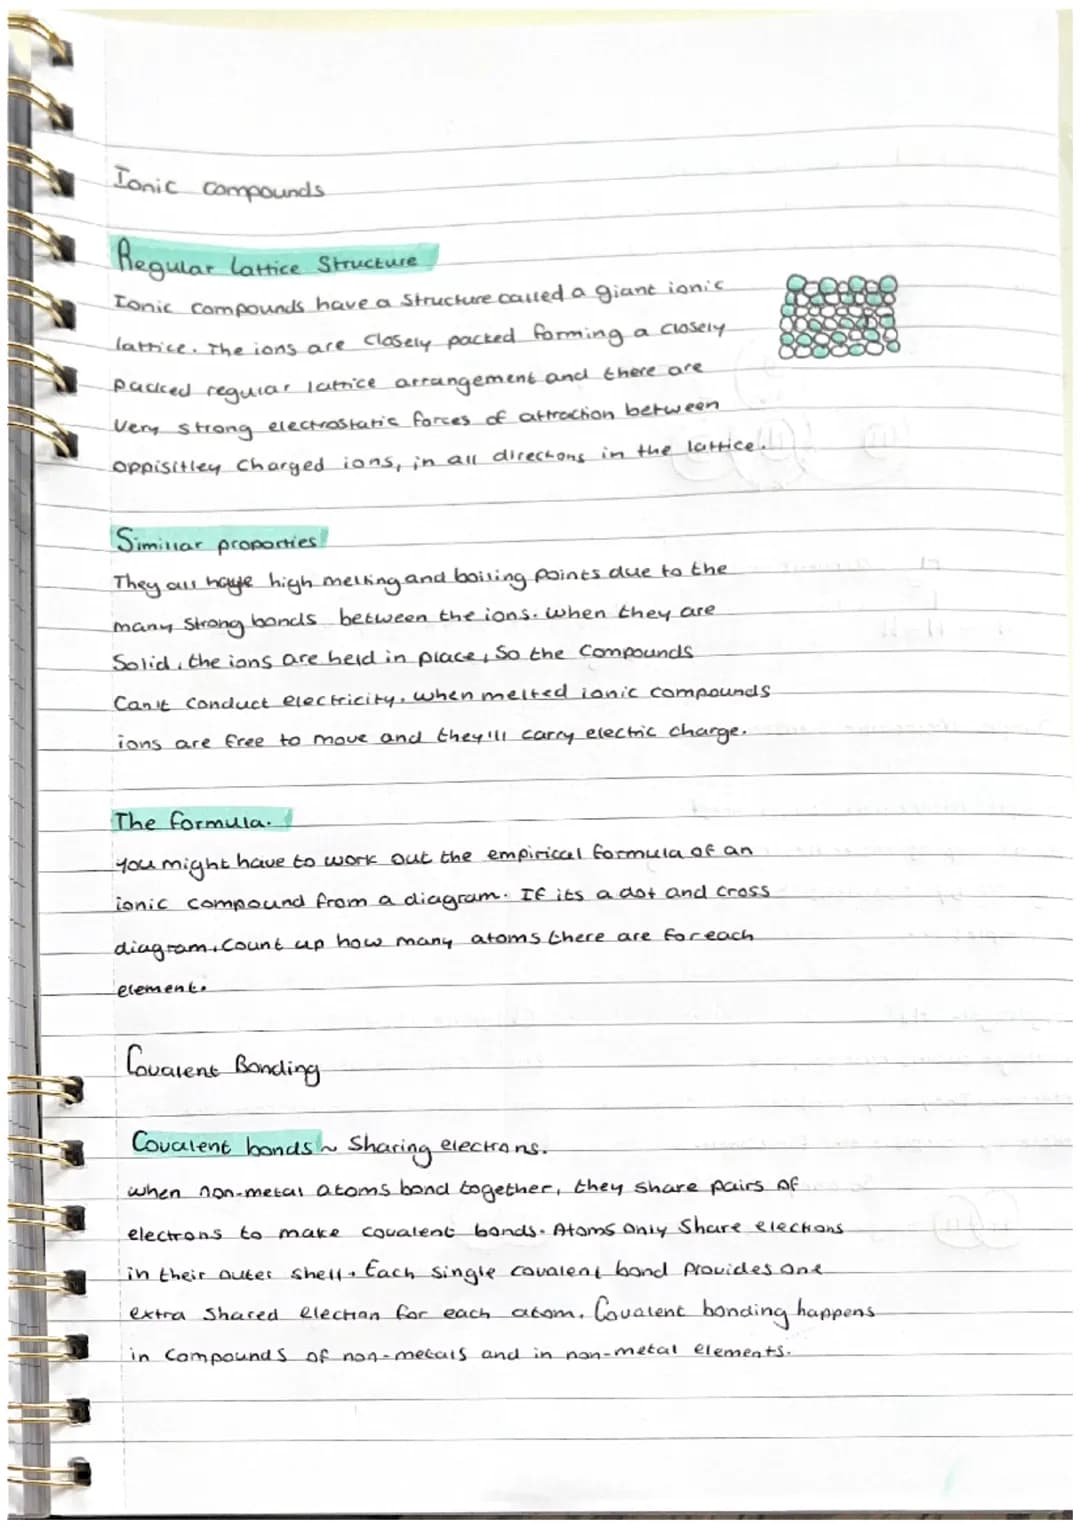 Ionic compounds
Regular Lattice Structure
Ionic compounds have a structure called a giant ionic
lattice. The ions are closely packed forming a closely
packed regular lattice arrangement and there are
very strong electrostatic forces of attraction between
oppisitley charged ions, in all directons in the lattice.
Simillar proporties
They all have high melting and boiling points due to the
many strong bonds between the ions. when they are
solid, the ions are held in place, so the compounds
can't conduct electricity. when melted ionic compounds
ions are free to move and they'll carry electric charge.
The formula.
you might have to work out the empirical formula of an
ionic compound from a diagram. If its a dot and cross
diagram, count up how many atoms there are for each
element.
Covalent Bonding
Covalent bonds ~ Sharing electrons.
when non-metal atoms bond together, they share pairs of
electrons to make covalent bonds. Atoms only share electrons
in their outer shell. Each single covalent bond provides one
extra shared electron for each atom. Covalent bonding happens
in compounds of non-metals and in non-metal elements.